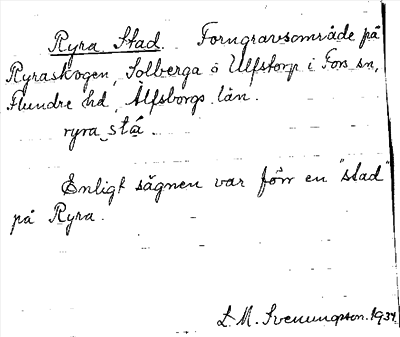 Ryra Stad. Forngravsområde på
Ryraskogen, Solberga o Ulfstorp i Fors sn,
Flundre hd, Älfsborgs län.
ryra stá.
Enligt sägnen var förr en "stad"
på Ryra.
L. M. Svenungsson. 1937